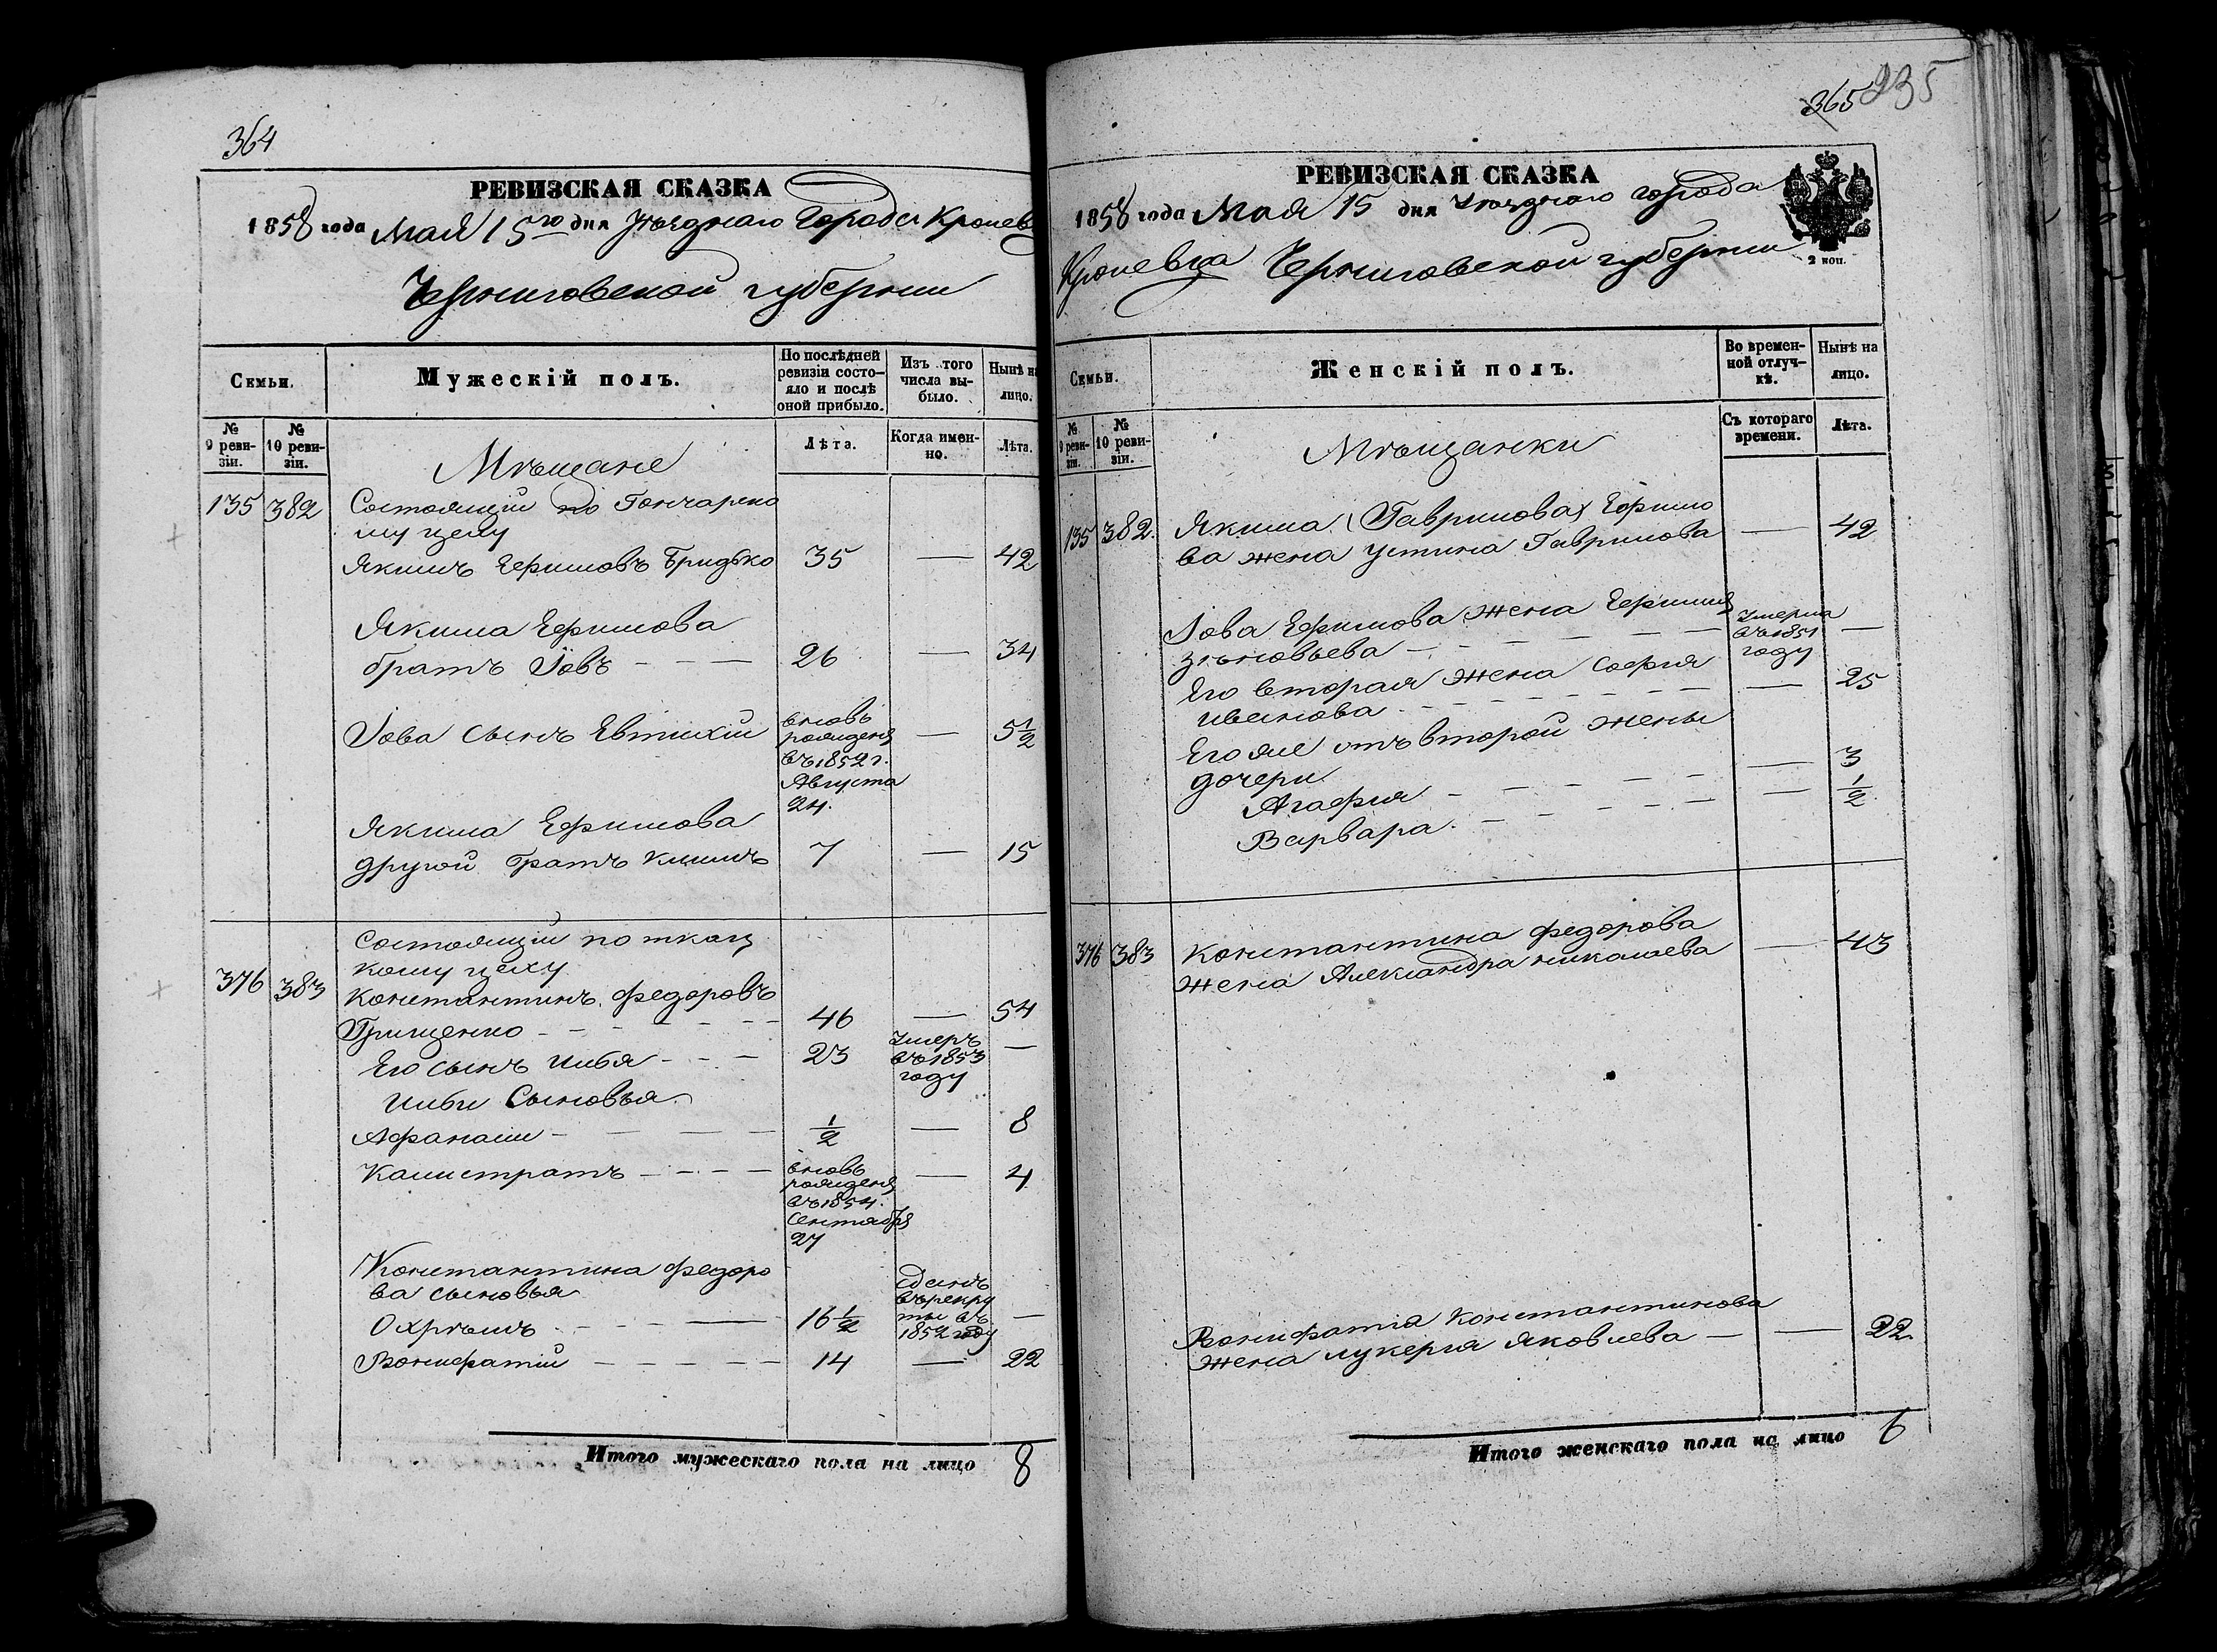 364
РЕВИЗСКАЯ СКАЗКА
1858 года Мая 15го дня Уѣзднаго Города Кролевца
Черниговской губернии
Семьи.
Мужескій полъ.
По послѣдней ревизіи состояло и послѣ оной прибыло.
Изъ того числа выбыло.
Нынѣ на лицо.
№ 9 ревизіи.
№ 10 ревизіи.
Лѣта.
Когда именно.
Лѣта.
Мѣщане
135 382 Состоящій по Гончарно
му цеху
Якимъ Ефимовъ Бридько 35 — 42
Якима Ефимова
братъ Іовъ - - — 26 — 34
Іова сынъ Евтихій вновь — 5½
рожденъ
въ 1852 г.
Августа
24.
Якима Ефимова
другой братъ Климъ 7 — 15
Состоящій по ткац
кому цеху
376 383 Константинъ Федоровъ
Грищенко - - - - - - 46 — 54
Его сынъ Илья - - — 23 Умеръ —
въ 1853
году
Ильи Сыновья
Афанасій - — — — ½ — 8
Калистратъ - - - — вновь — 4
рожденъ
въ 1854.
Сентября
27
Константина Федоро
ва сыновья
Охрѣмъ - - - — 16½ сданъ —
въ рекру
ты въ
1852 году
Вонифатій - - - - - 14 — 22
Итого мужескаго пола на лицо 8
365 235
РЕВИЗСКАЯ СКАЗКА
1858 года Мая 15 дня Уѣзднаго города
Кролевца Черниговской губернии
2 коп.
Семьи.
Женскій полъ.
Во временной отлучкѣ.
Нынѣ на лицо.
№ 9 ревизіи.
№ 10 ревизіи.
Съ котораго времени.
Лѣта.
Мѣщанки
135 382. Якима (Гаврилова) Ефимо
ва жена Устина Гаврилова — 42
Іова Ефимова жена Ефимія Умерла
Зѣновьева - - - - - въ 1851 —
году
Его вторая жена София
Иванова - - - - - — 25
Его же отъ второй жены
дочери
Агафия - - - - — 3
Варвара. - - - - — ½
376 383 Константина Федорова
жена Александра Николаева — 43
Вонифатия Константинова
жена Лукерия Яковлева — — 22.
Итого женскаго пола на лицо 6